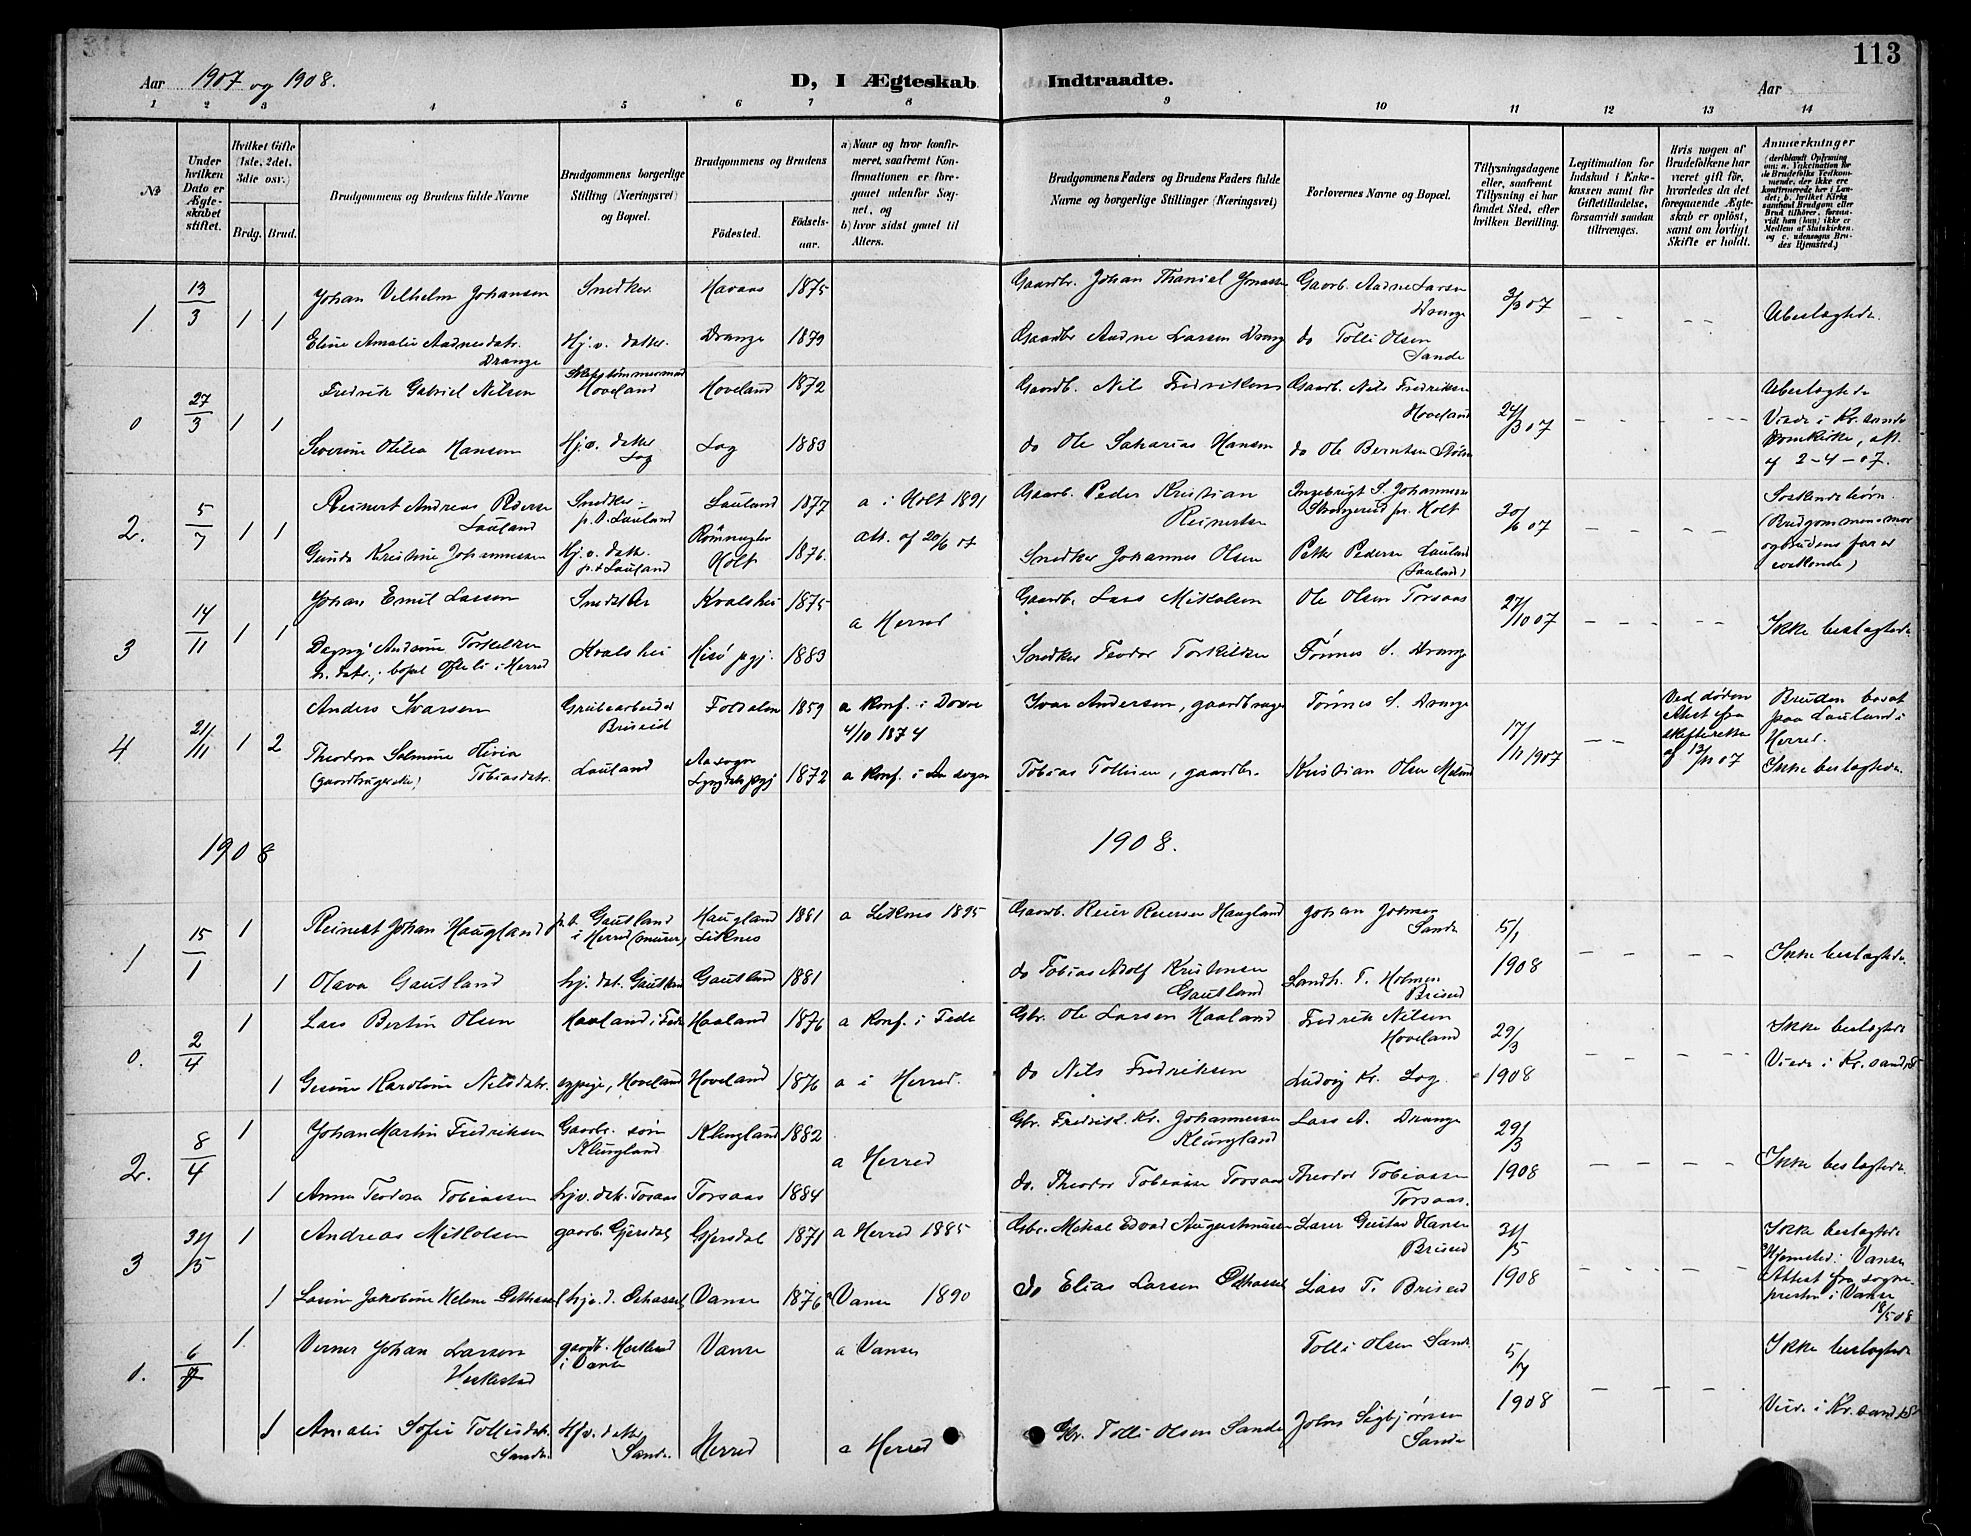 113
Aar 1907 og 1908. D, I Ægteskab Indtraadte. Aar
1 2 3 4 5 6 7 8 9 10 11 12 13 14
No
Under hvilken Dato er Ægteskabet stiftet.
Hvilket Gifte (1ste, 2det, 3die osv.)
Brdg. Brud.
Brudgommens og Brudens fulde Navne
Brudgommens borgerlige Stilling (Næringsvei) og Bopæl.
Brudgommens og Brudens
Födested. Födselsaar.
a) Naar og hvor konfirmeret, saafremt Konfirmationen er foregaaet udenfor Sognet, og
b) hvor sidst gaaet til Alters.
Brudgommens Faders og Brudens Faders fulde Navne og borgerlige Stillinger (Næringsvei)
Forlovernes Navne og Bopæl.
Tillysningsdagene eller, saafremt Tillysning ei har fundet Sted, efter hvilken Bevilling.
Legitimation for Indskud i Enkekassen samt før Giftetilladelse, forsaavidt saadan tiltrænges.
Hvis nogen af Brudefolkene har været gift før, hvorledes da det foregaaende Ægteskab er oplöst, samt om lovligt Skifte er holdt.
Anmærkninger
1. 13/3 1 1 Johan Vilhelm Johansen Snedker Havaas 1875 Gaardbr. Johan Thaniel Jonassen Gaarb. Aadne Larsen Drange 3/3 07 Ubeslægtede.
Eline Amalie Aadnesdatr. Drange Hj.v. datter. Drange 1879 Gaardbr Aadne Larsen Drang do Tolli Olsen Sande
0 27/3 1 1 Fredrik Gabriel Nilsen Skibstømmermand Hoveland Hoveland 1872 Gaardb. Nils Fredriksen Gaardb. Nils Fredriksen Hoveland 24/3 07 Ubeslægtede Viede i Kr.sands Domkirke, att. af 2-4-07.
Severine Otilia Hansen Hj.v. datter Log Log 1883 do Ole Sakarias Hansen do Ole Berntsen
2. 5/7 1 1 Reinert Andreas Peders. Lauland Snedker p.t. Lauland Lauland 1877 a i Holt 1891 Gaarb. Peder Kristian Reinertsen Ingebrigt S. Johannessen pr. Holt 30/6 07 Søskendebørn. (Brudgommens mor og brudens far er søskende)
Gunda Kristine Johannessen Hj.v. datt. p.t. Lauland Holt 1876. att. af 20/6 07 Snedker Johannes Olsen Petter Pedersen Lauland (Lauland)
3 14/11 1 1 Johan Emil Larsen Snedker Kvalshei 1875 a Herred Gaardb. Lars Mikalsen Ole Olsen Torsaas 27/10 07 Ikke beslægtede
Dagny Andrine Torkelsen h. datr., bopæl Ofteli i Herred Kvalshei Hisø pgj. 1883 Snedker Teodor Torkildsen Tønnes S. Drange
4 21/11 1 2 Anders Ivarsen Grubearbeider Briseid Foldalen 1859 a Konf. i Dovre 4/10 1874 Ivar Andersen, gaardbruger Tønnes S. Drange 17/11 1907 Ved døden Attest fra skifteretten af 13/11 07 Bruden bosat paa Lauland i Herred. Ikke beslægtede
Theodora Salmine Olivia Tobiasdatr. (gaardbrugerske) Lauland Aa sogn Lyngdals pgj 1872 a Konf. i Aa sogn Tobias Tollisen, gaardbr. Kristian Olsen
1908 1908.
1 15/1 1 Reinert Johan Haugland p.t. Gautland i Herred (murer) Haugland Liknes 1881 a Liknes 1895 Gaarb. Reier Reiersen Haugland Johan Johnsen Sande 5/1 1908 Ikke beslægtede
1 Olava Gautland hj. dat. Gautland Gautland 1881 do Tobias Adolf Kristensen Gautland Landh. T. Holmen Briseid
0. 2/4 1 Lars Bertin Olsen Haaland i Fede Haaland 1876 a Konf. i Fede Gbr. Ole Larsen Haaland Fredrik Nilsen Hoveland 29/3 1908 Ikke beslægtede Viede i Kr.sand
1 Gesine Karoline Nilsdatr. Hoveland Hoveland 1876 a i Herred. do Nils Fredriksen Ludvig Kr. Log
2. 8/4 1 Johan Martin Fredriksen Gaardbr. søn Klungland Klungland 1882 a Herred Gbr. Fredrik Kr. Johannessen Klungland Lars A. Drange 29/3 1908 Ikke beslægtede
1 Anna Teodora Tobiassen hjv. dat. Torsaas Torsaas 1884 do. Theodor Tobiassen Torsaas Theodor Tobiassen Torsaas.
3 31/5 1 Andreas Mikalsen gaarb. Gjersdal Gjersdal 1871 a Herred 1885 Gbr. Mikal Edvad Augustinusen Laver Gustav Hansen Briseid 31/5 1908 Ikke beslægtede Hjemsted: Vanse Attest fra sognepresten i Vanse 18/5 08
1 Lovise Jakobine Helene Østhassel hjv. d. Østhassel Vanse 1876 a Vanse 1890 do Elias Larsen Østhassel Lars T. Briseid
0. 6/7 1. Verner Johan Larsen gaardb. i Vanse Vanse a Vanse Tolli Olsen Sande 5/7 1908 Ikke beslægtede Viede i Kr.sand
1 Amalie Sofie Tollisdatr. Sande. Hjv. datter Sande. Herred a Herred Gbr. Tolli Olsen Sande Johs Sigbjørnsen Sande